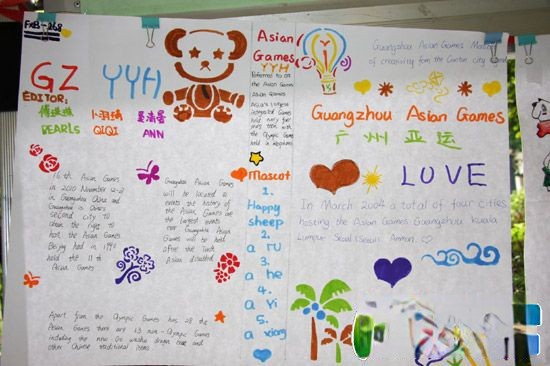 GZ
YYH
EDITOR:
PEARLS
QIQI
ANN
16th Asian Games
in 2010 November 12-2
in Guangzhou China and
Guangzhou is China's
second city to
obtain the right to
host the Asian Games
Beijing had in 1990
held the 11 th
Asian Games
Guangzhou Asian Games
will be located to
events the history of
the Asian Games are
the largest events
ever Guangzhou Asian
Games will be held
after the Tenth
Asian disabled
Apart from the Olympic Games has 28 the
Asian Games there are 13 non-Olympic Games
including the new Go wushu dragon boat and
other Chinese traditional items
Asian
Games
YYH
Referred to on
the Asian Games
Asian Games
Asia's largest
integrated Games
held every four
years even with
the Olympic Games
held in
Mascot
1.
Happy
sheep
2.
a ru
3.
a he
4.
a Yi
5.
a xiang
Guangzhou Asian Games
of creativity from the Canton city
Guangzhou Asian Games
广州 亚运
LOVE
In March 2004 a total of four cities
hosting the Asian Games: Guangzhou kuala
Lumpur Seoul (Seoul) Amman.